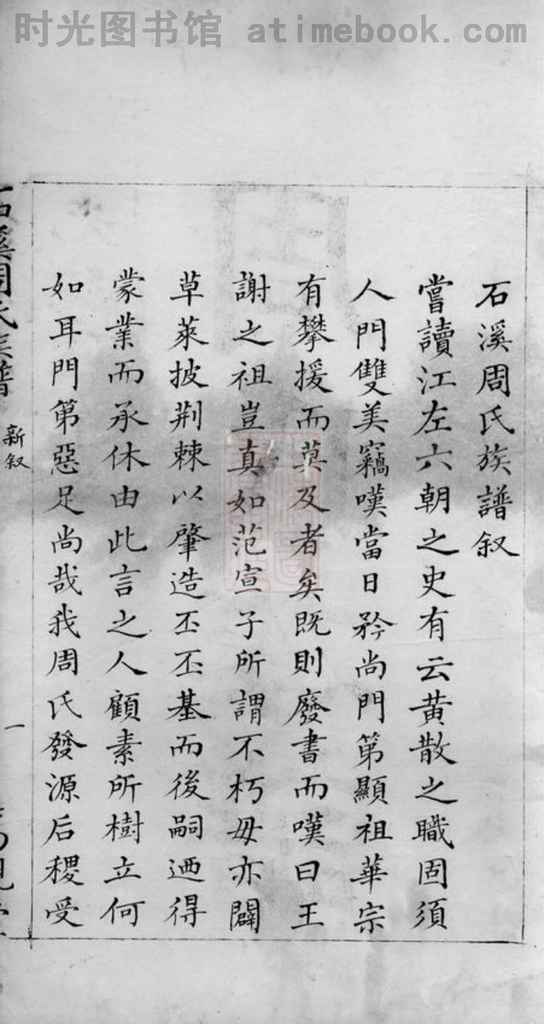 时光图书馆 atimebook.com
石溪周氏族譜叙
嘗讀江左六朝之史有云黄散之職固須
人門雙美竊嘆當日矜尚門第顯祖華宗
有攀援而莫及者矣既則廢書而嘆曰王
謝之祖豈真如范宣子所謂不朽毋亦闢
草萊披荆棘以肇造丕丕基而後嗣迺得
蒙業而承休由此言之人顧素所樹立何
如耳門第惡足尚哉我周氏發源后稷受
石溪周氏族譜
新叙
一